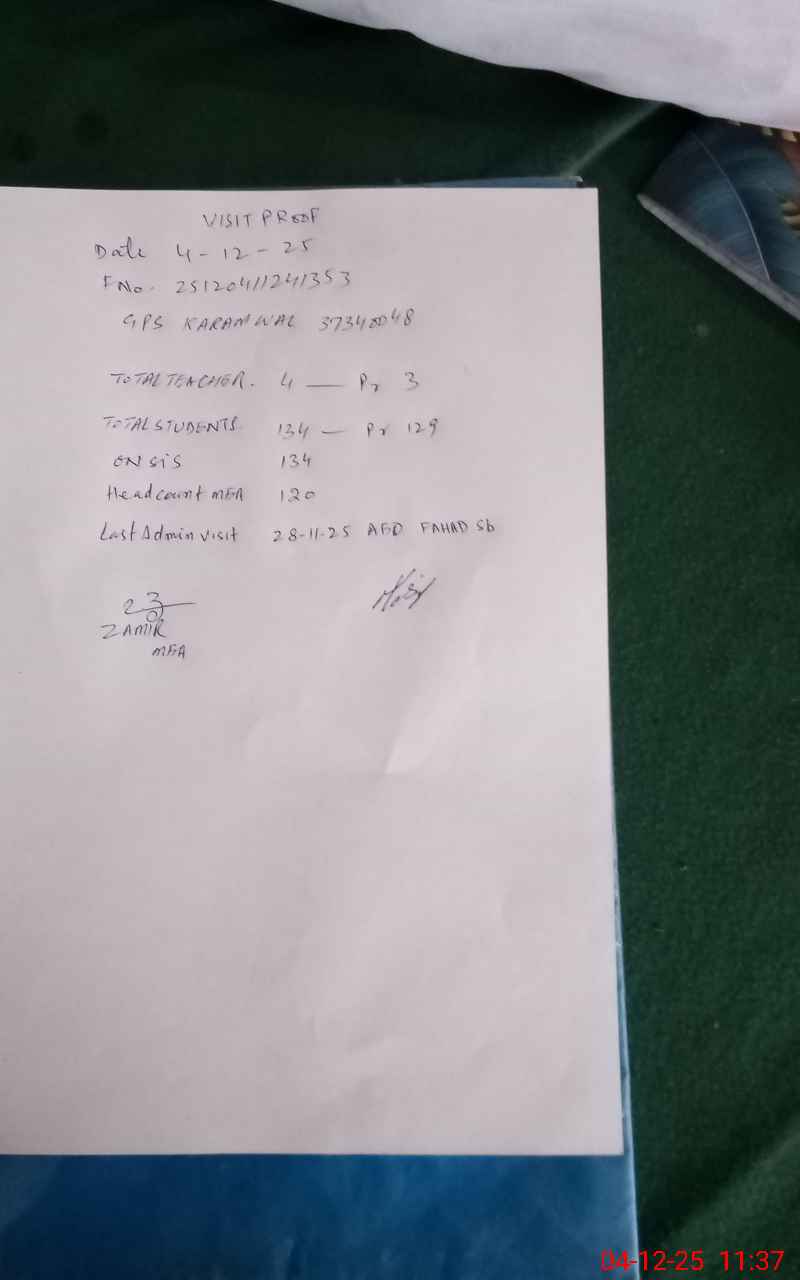 VISIT PROOF
Date 4-12-25
FNo. 25120411241353
GPS KARAMWAL 37340048
TOTAL TEACHER. 4 — Pr 3
TOTAL STUDENTS. 134 — Pr 129
ON SIS 134
Headcount MEA 120
Last Admin visit 28-11-25 AEO FAHAD Sb
ZAMIR
MEA
04-12-25 11:37